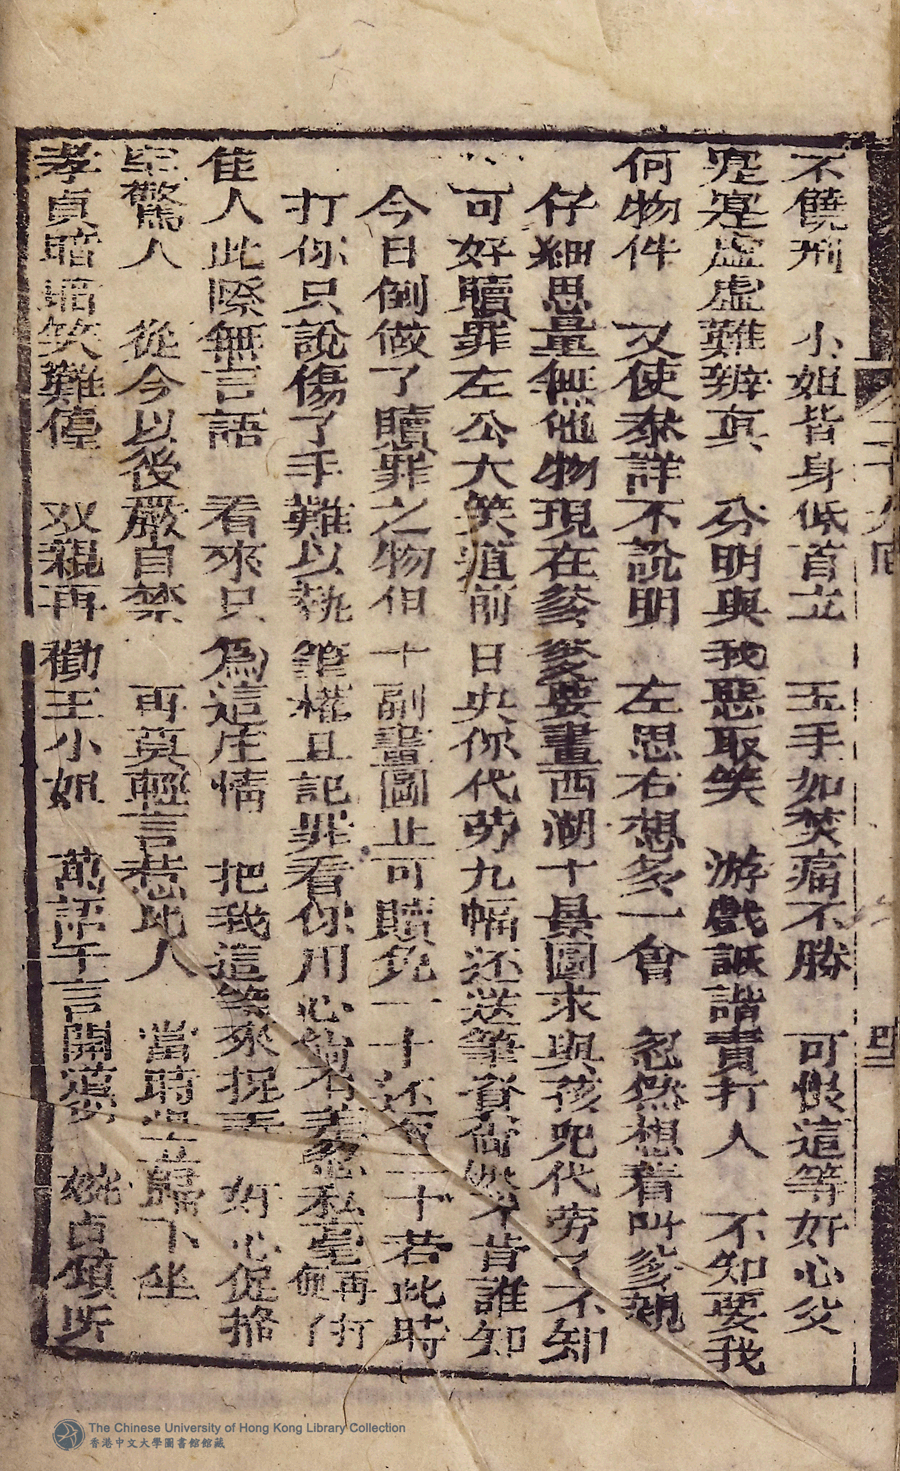 不饒刑 小姐皆身低首立 玉手如焚痛不勝 可恨這等好心父
寔寔虛虛難辨真 分明與我惡取笑 游戲詼諧責打人 不知要我
何物件 又使叅詳不説明 左思右想多一會 忽然想着叫爹親
仔細思量無他物現在爹爹要畫西湖十景圖求與孩兒代勞了不知
可好贖罪左公大笑道前日央你代勞九幅还送筆資尚然不肯誰知
今日倒做了贖罪之物但十副畫圖止可贖免一十还有二十若此時
打你只說傷了手難以執筆權且記罪看你用心倘有差忽私毫再
佳人此際無言語 看來只為這庄情 把我這等來捉弄 好心促掐
驚人 從今以後嚴自禁 再莫輕言惹此人 當時歸下坐
孝貞暗暗笑難停 双親再勸王小姐 萬語千言開 婉貞領
二十九回
The Chinese University of Hong Kong Library Collection
香港中文大學圖書館館藏